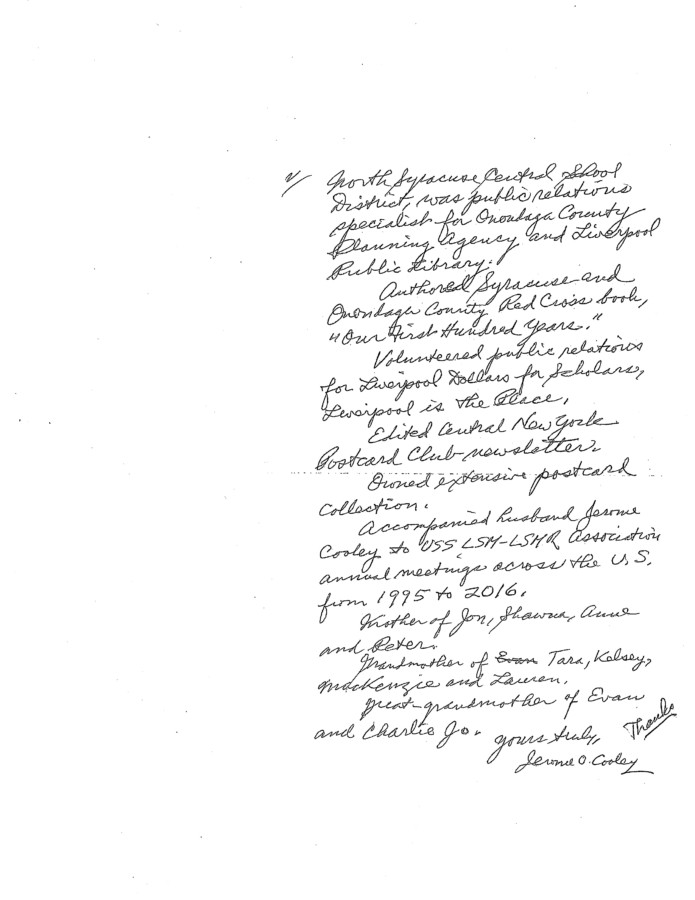 2/ North Syracuse Central Shool
District, was public relations
specialist for Onondaga County
Planning Agency and Liverpool
Public Library.
Authored Syracuse and
Onondaga County Red Cross book,
"Our First Hundred Years."
Volunteered public relations
for Liverpool Dollars for Scholars,
Liverpool is the Place,
Edited Central New York
Postcard Club newsletter.
Owned extensive postcard
collection.
Accompanied husband Jerome
Cooley to USS LSM-LSMR Association
annual meetings across the U.S.
from 1995 to 2016.
Mother of Jon, Shawna, Anne
and Peter.
Grandmother of Evan Tara, Kelsey,
MacKenzie and Lauren.
Great-grandmother of Evan
and Charlie Jo.
Yours truly, Thanks
Jerome O. Cooley